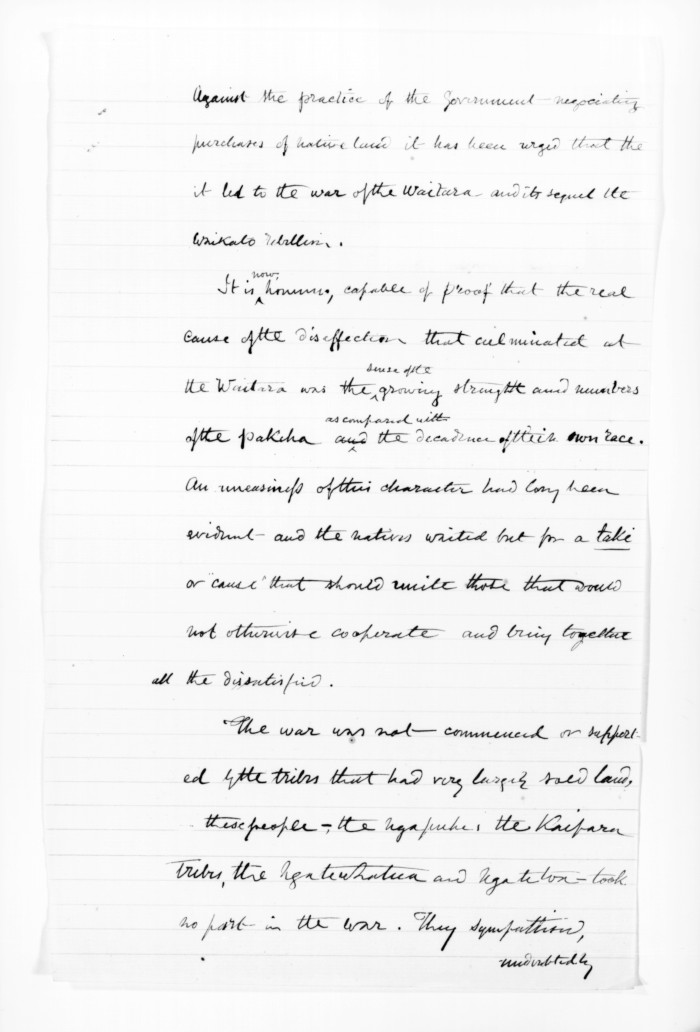 Against the practice of the Government negociating
purchases of native land it has been urged that the
it led to the war of the Waitara and its sequel the
Waikato rebellion.
now,
It is however, capable of proof that the real
cause of the disaffection that culminated at
sense of the
the Waitara was the growing strength and numbers
as compared with
of the pakeha and the decadence of their own race.
An uneasiness of this character had long been
evident and the natives waited but for a take
or "cause" that should unite those that would
not otherwise cooperate and bring together
all the dissatisfied.
The war was not commenced or support-
ed by the tribes that had very largely sold land,
these people - the Ngapuhi, the Kaipara
tribes, the Ngatiwhatua and - took
no part in the war. They sympathised,
undoubtedly